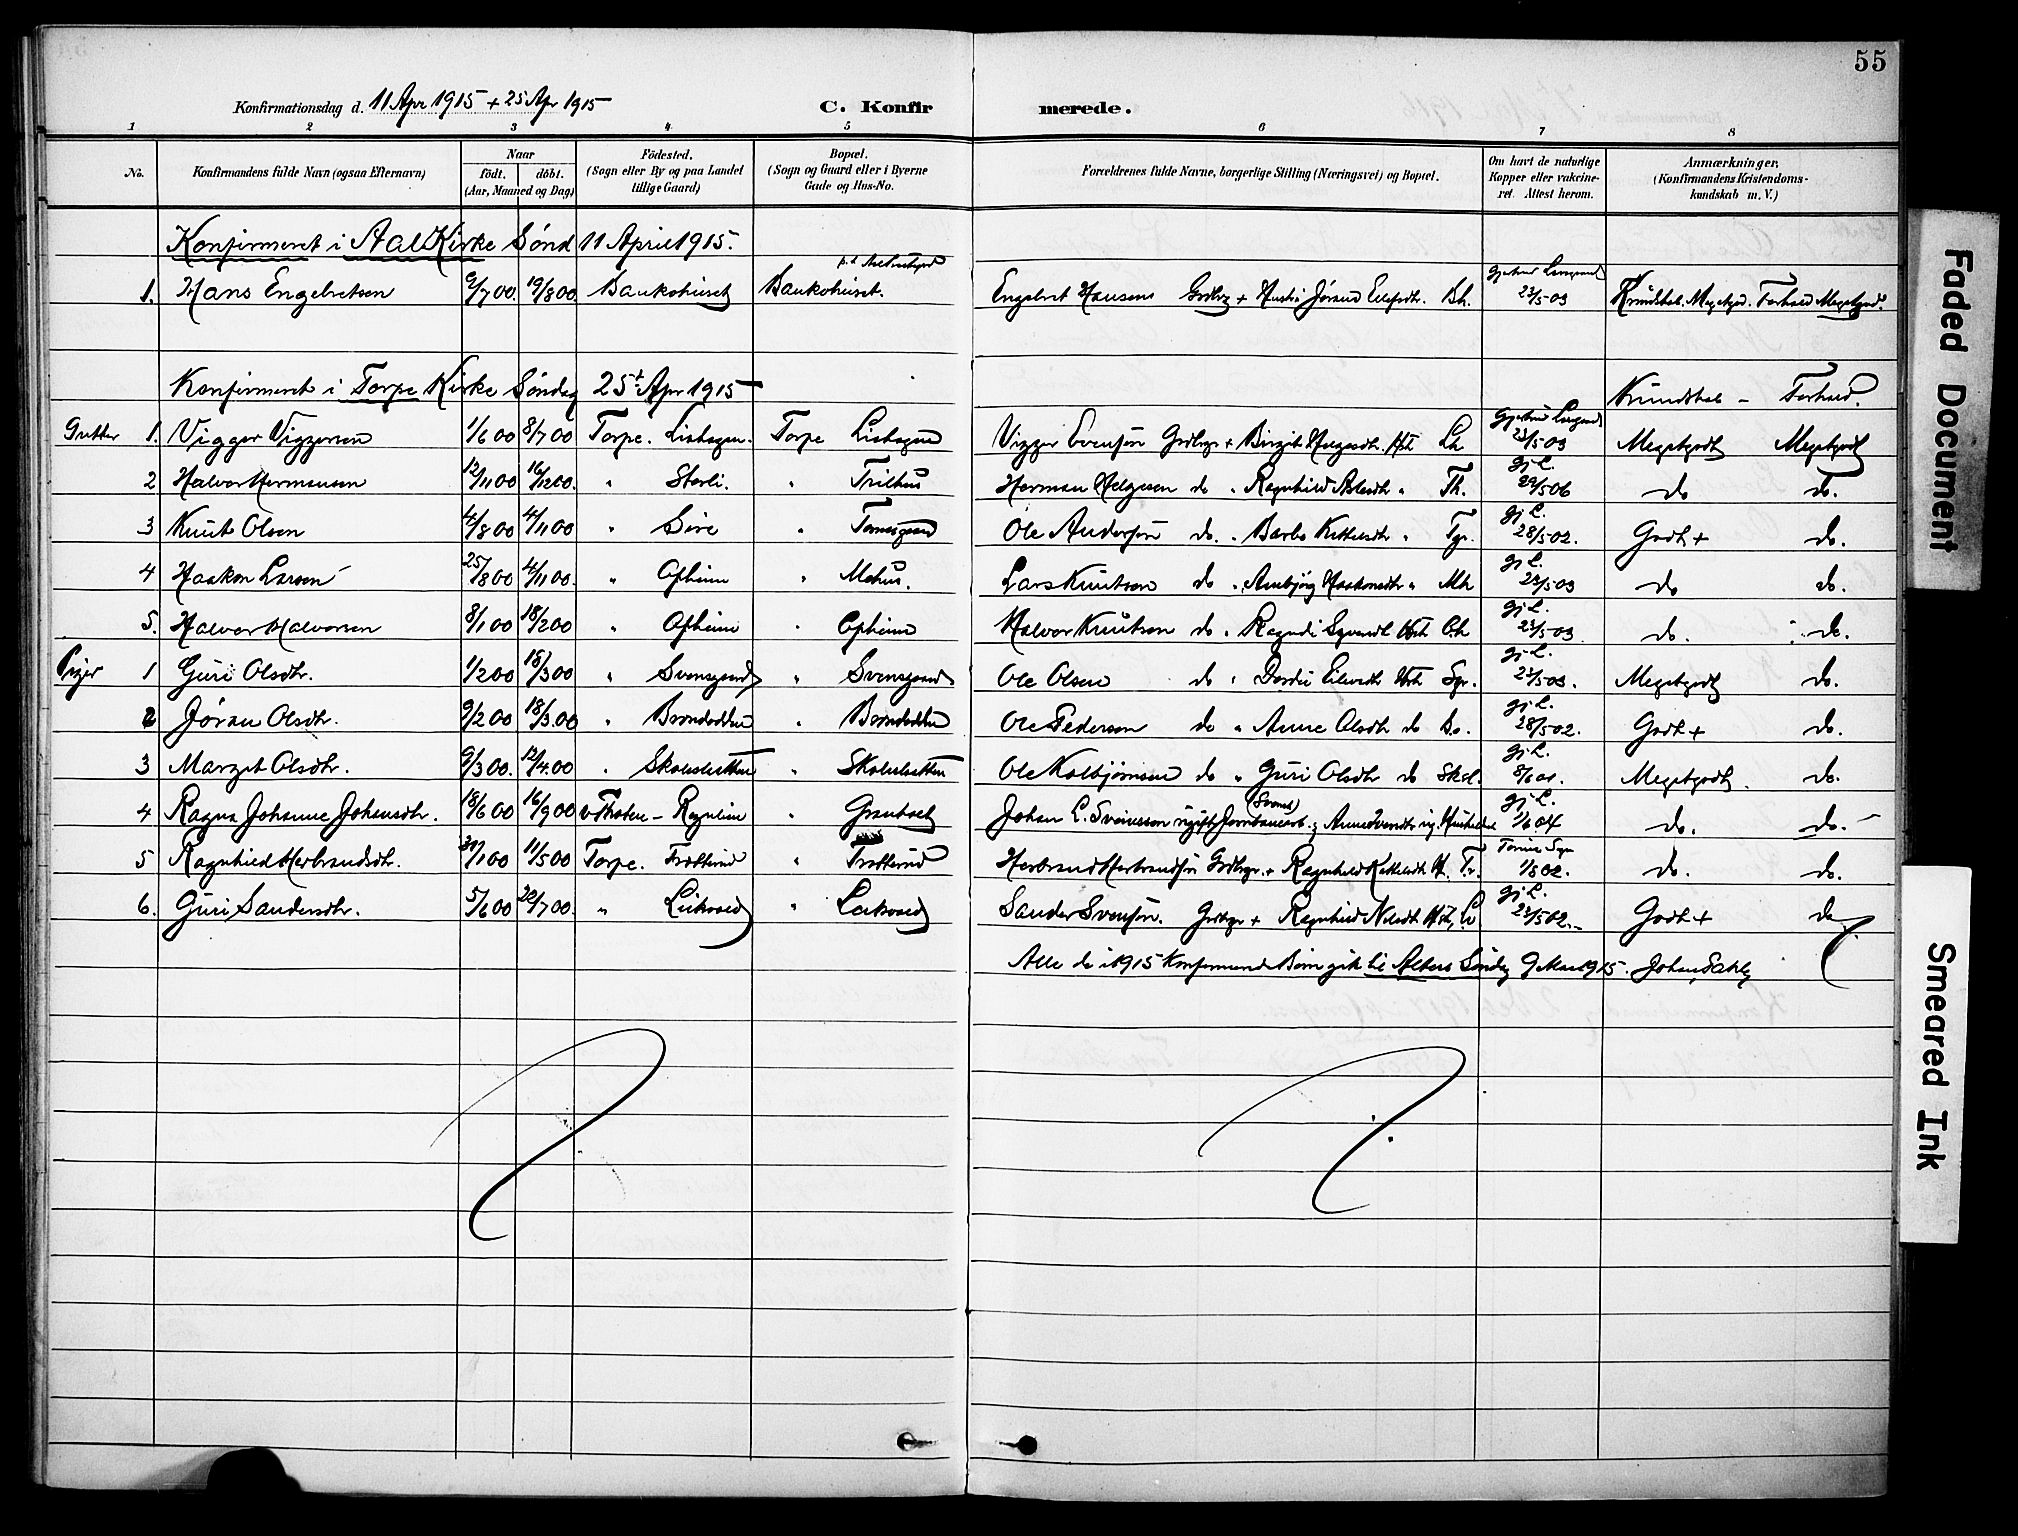 55
Konfirmationsdag d. 11 Apr 1915 + 25 Apr 1915 C. Konfirmerede.
1 2 3 4 5 6 7 8
No. Konfirmandens fulde Navn (ogsaa Efternavn) Naar født. døbt. (Aar, Maaned og Dag) Fødested. (Sogn eller By og paa Landet tillige Gaard) Bopæl. (Sogn og Gaard eller i Byerne Gade og Hus-No. Forældrenes fulde Navne, borgerlige Stilling (Næringsvei) og Bopæl. Om havt de naturlige Kopper eller vaccineret. Attest herom. Anmærkninger. (Konfirmandens Kristendomskundskab m. V.)
Konfirmeret i Aal Kirke Sønd 11 April 1915.
1. Hans Engebretsen 9/7 00. 19/8 00 Baukohuset Baukohuset. Engebret Hansen Grdbr + Hustr Jøran Bh. 23/5 03 Kundskab. Megetgod. Forhold Megetgod.
Konfirmeret i Torpe Kirke Søndag 25t Apr 1915 Kundskab - Forhold.
Gutter 1. Vigger Viggersen 1/6 00 8/7 00 Torpe. Lishagen. Torpe Lishagen Vigger Evensen Grdbgr + Birgit Helgesdtr. Hst Lh 23/5 03 Megetgodt Megetgodt
2 Halvor Hermansen 12/11 00 16/12 00. " Storli. " Trilhus Herman Helgesen do " Ragnhild Aslesdtr " Th. gj L. 29/5 06 do do.
3 Knut Olsen 4/8 00 4/11 00 " Sire " Ole Andersen do. " Barbo Kittelsdtr " Tgr. gj L. 28/5 02. Godt + do.
4 Haakon Larsen 25/8 00 4/11 00. " Opheim " Mehus. Lars Knutsen do " Ambjørg Haakonsdtr " Mh gj L. 23/5 03 do do.
5. Halvor Halvorsen 8/1 00 18/2 00 " Opheim " Opheim Halvor Knutsen do " Hst Oh gj L. 23/5 03 do. do.
Piger 1 Guri Olsdtr. 1/2 00 18/3 00 " Svensgaard " Svensgaard Ole Olsen do " Dordei Eilevsdtr Hst Sgr. gj L. 23/5 03. Megetgodt do.
2 Jøran Olsdtr. 9/2 00 18/3.00 " " Ole Pedersen do " Anne Olsdtr do Bo. gj L. 28/5 02. Godt + do.
3 Margit Olsdtr. 9/3 00. 12/4.00 " Skolesletten " Skolesletten Ole Kolbjørnsen do " Guri Olsdtr do Skol. gj L. Megetgodt. do.
4 Ragna Johanne Johansdtr. 18/6 00 16/9 00 - " Johan L. Svensson ugift (Svensk) gj L. 1/6 04 do. do.
5 Ragnhild Herbrandsdtr. 30/1 00 11/5 00 Torpe. Trøtterud " Trøtterud Herbrand Herbrandsen Grdbgr. + Ragnhild Kittelsdtr H. Tr. 1/8 02. do. do.
6. Guri Sandersdtr. 5/6 00 22/7 00. " Leikvold " Leikvold Sander Svensen. Grdbgr + Ragnhild Nilsdtr Hst, Lv. gj L. 23/5 02. Godt + do
Alle de i 1915 Konfirmerede Børn gik til Alters Søndag 9 Mai 1915. Johan
Faded Document
Smeared Ink